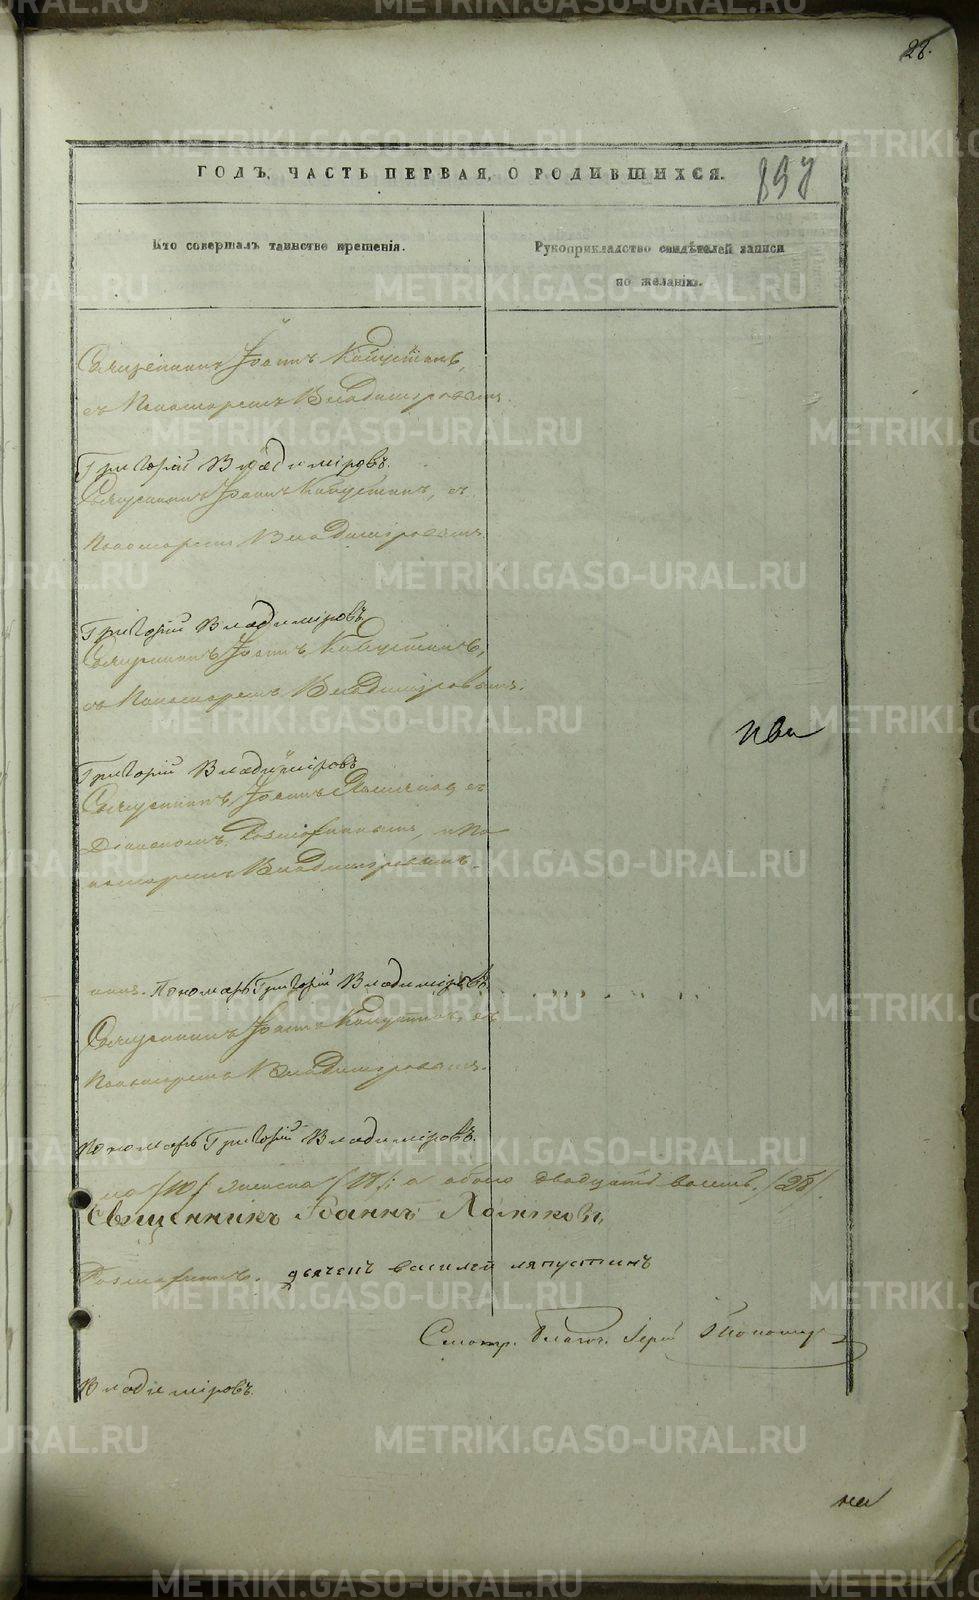 28.
897
ГОДЪ, ЧАСТЬ ПЕРВАЯ, О РОДИВШИХСЯ.
Кто совершалъ таинство крещенія.
Рукоприкладство свидѣтелей записи
по желанію.
Священникъ Іоаннъ Капустинъ,
съ Пономаремъ Владиміровымъ.
Григорій Владиміровъ.
Священникъ Іоаннъ Капустинъ, съ
Пономаремъ Владиміровымъ.
Григорій Владиміровъ.
Священникъ Іоаннъ Капустинъ,
съ Пономаремъ Владиміровымъ.
Григорій Владиміровъ
Священникъ Іоаннъ съ
Діакономъ и По
номаремъ Владиміровымъ.
Пономарь Григорій Владиміровъ.
Священникъ Іоаннъ Капустинъ, съ
Пономаремъ Владиміровымъ.
Пономарь Григорій Владиміровъ.
/10/ женска /18/; а обоего двадцать восемь /28/.
Священникъ Іоаннъ
дьячекъ василей
Смотр. Благоч. Іерей
Владиміровъ.
на
METRIKI.GASO-URAL.RU